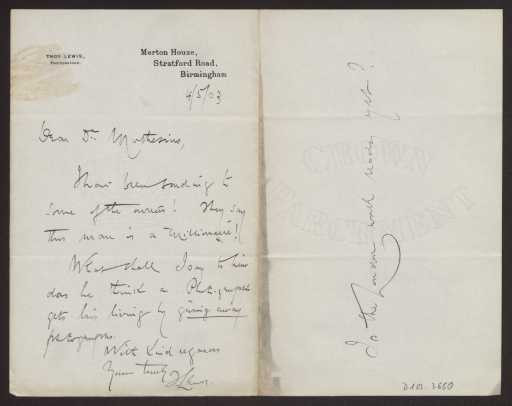 THOS. LEWIS,
PHOTOGRAPHER.
Merton House,
Stratford Road,
Birmingham
4/5/03
Dear Dr. Muthesius,
I have been sending to
some of the owners! They say
this man is a Millionaire!
What shall I say to him
does he think a Photographer
gets his living by giving away
photographs.
With kind regards
Yours truly
T Lewis
Is the London work ready yet?
CROWN
PARCHMENT
D 102 - 2650